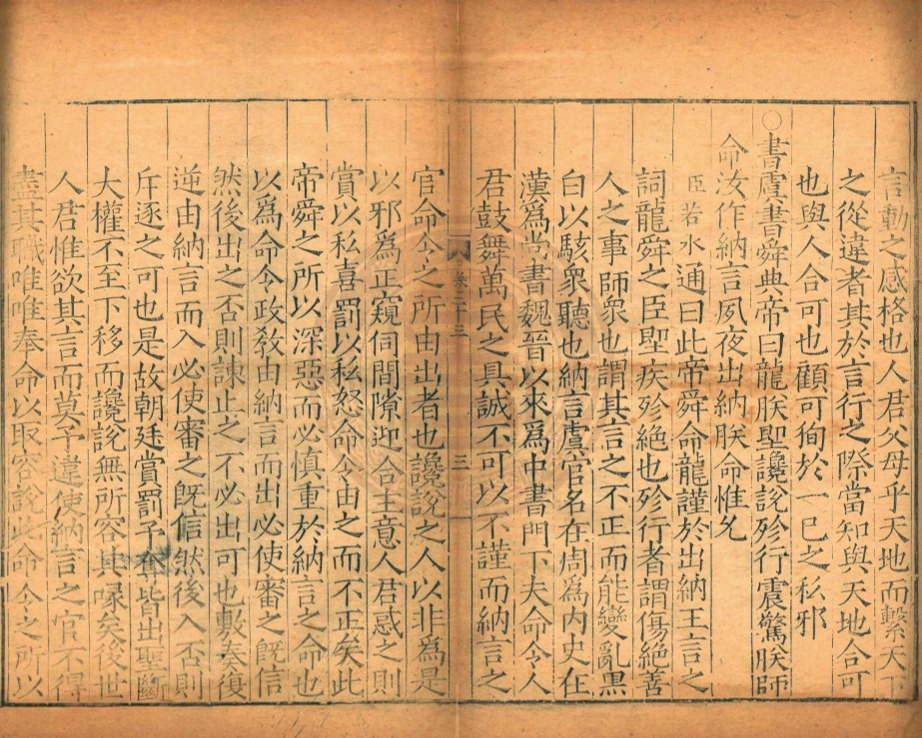 言動之感格也人君父母乎天地而繫天下
之從違者其於言行之際當知與天地合可
也與人合可也顧可徇於一已之私邪
○書虞書舜典帝曰龍朕聖讒說殄行震驚朕師
命汝作納言夙夜出納朕命惟允
臣若水通曰此帝舜命龍謹於出納王言之
詞龍舜之臣聖疾殄絶也殄行者謂傷絶善
人之事師衆也謂其言之不正而能變亂黑
白以駭衆聽也納言虞官名在周爲内史在
漢爲尚書魏晉以來爲中書門下夫命令人
君鼓舞萬民之具誠不可以不謹而納言之
卷二十三
三
官命令之所由出者也讒說之人以非爲是
以邪爲正窺伺間隙迎合主意人君惑之則
賞以私喜罰以私怒命令由之而不正矣此
帝舜之所以深惡而必慎重於納言之命也
以爲命令政敎由納言而出必使審之旣信
然後出之否則諫止之不必出可也敷奏復
逆由納言而入必使審之旣信然後入否則
斥逐之可也是故朝廷賞罰予奪皆出聖斷
大權不至下移而讒說無所容其喙矣後世
人君惟欲其言而莫予違使納言之官不得
盡其職唯唯奉命以取容說此命令之所以